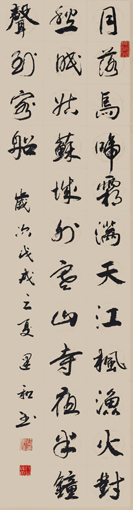 月落烏啼霜滿天江楓漁火對
愁眠姑蘇城外寒山寺夜半鐘
聲到客船
歲次戊戌之夏 里和书